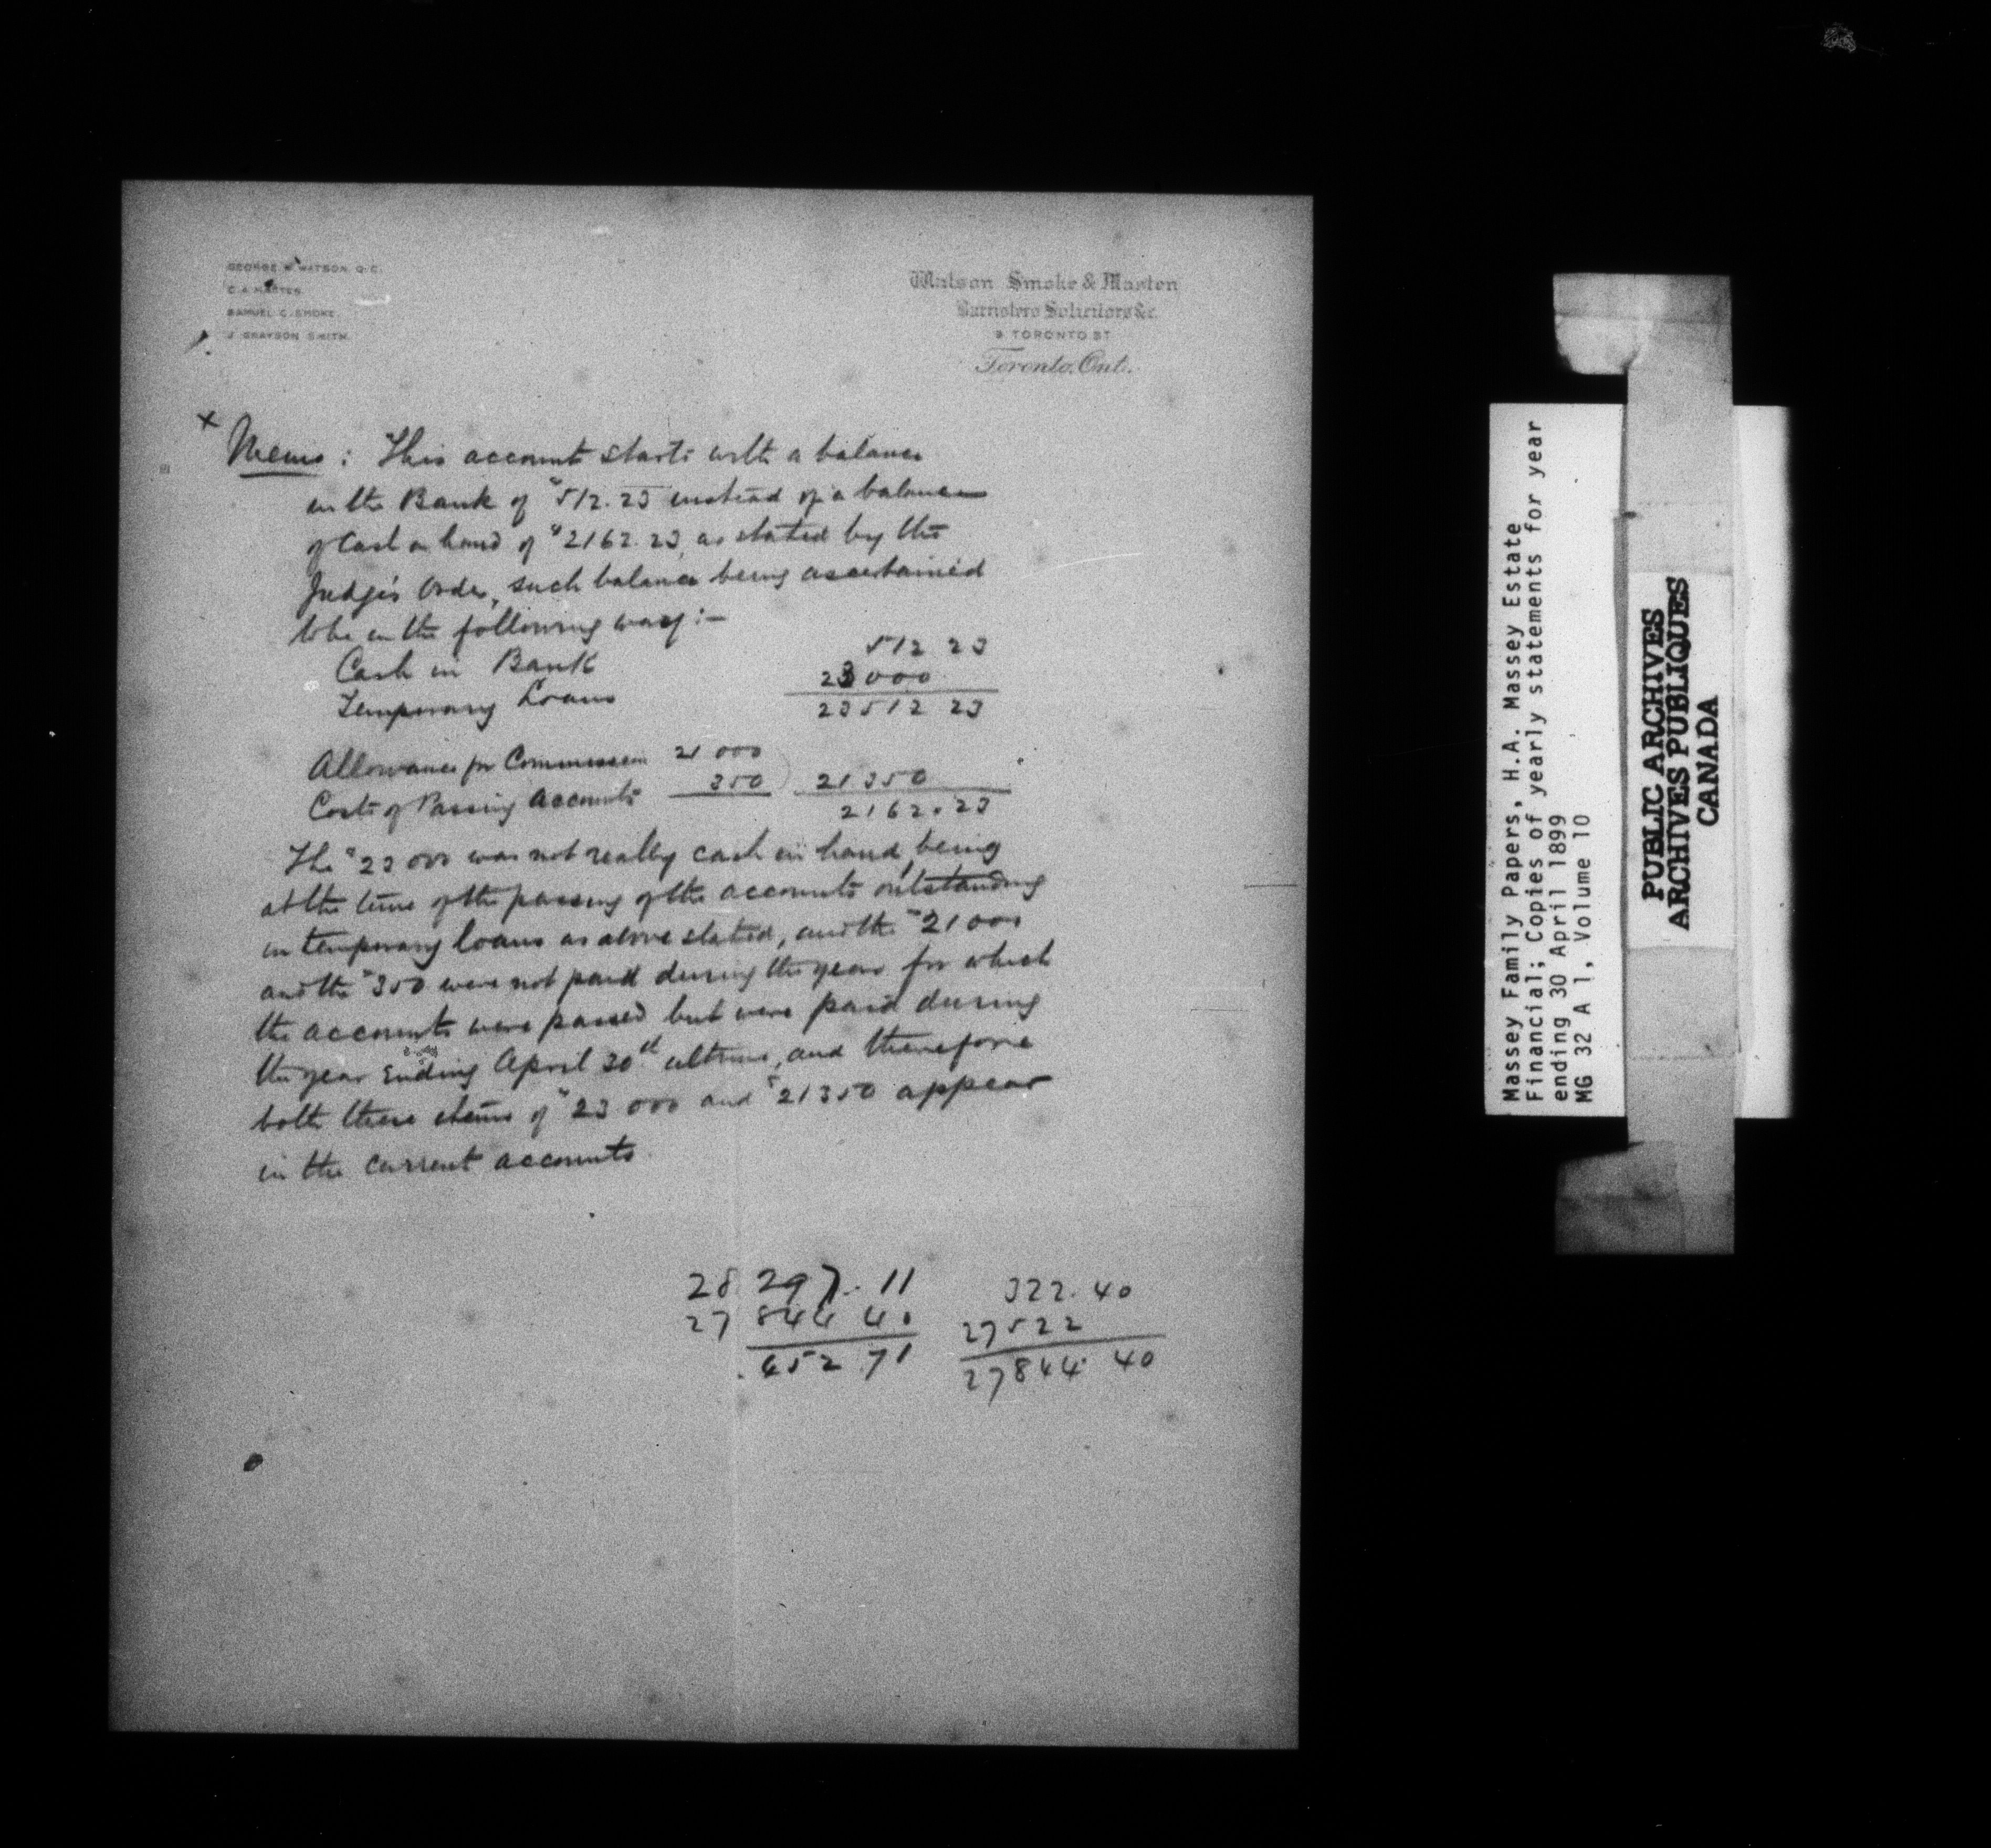 GEORGE H. WATSON, Q.C.
C. A. MASTEN.
SAMUEL C. SMOKE.
J. GRAYSON SMITH.
Watson Smoke & Masten
Barristers Solicitors &c.
9 TORONTO ST
Toronto, Ont.
x
Memo: This account starts with a balance
in the Bank of $512.23 instead of a balance
of Cash on hand of $2162.23, as stated by the
Judge's Order, such balance being ascertained
to be in the following way:-
Cash in Bank 512 23
Temporary Loans 23000
23512 23
Allowance for Commission 21 000
Costs of Passing Accounts 350 21 350
2162.23
The $23 000 was not really cash in hand, being
at the time of the passing of the accounts outstanding
in temporary loans as above stated, and the $21 000
and the $350 were not paid during the year for which
the accounts were passed but were paid during
the year Ending April 30th ultimo, and therefore
both these items of $23 000 and $21350 appear
in the current accounts.
28 297.11 322.40
27 844 40 27522
452 71 27844.40
Massey Family Papers, H.A. Massey Estate
Financial; Copies of yearly statements for year
ending 30 April 1899
MG 32 A 1, Volume 10
PUBLIC ARCHIVES
ARCHIVES PUBLIQUES
CANADA